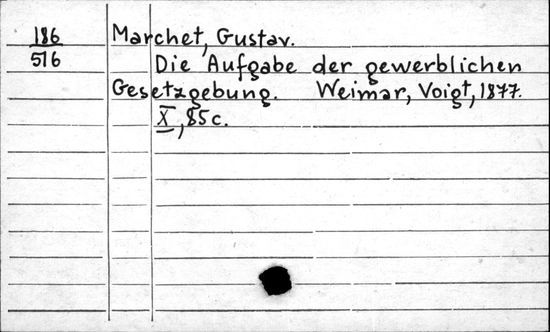 186
516
Marchet, Gustav.
Die Aufgabe der gewerblichen
Gesetzgebung. Weimar, Voigt, 1877.
X, 85 c.